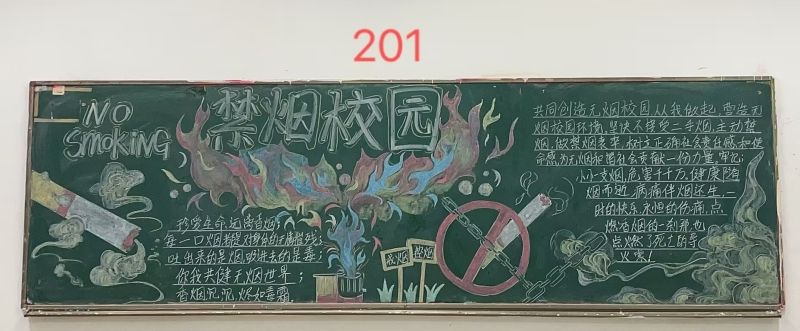 201
NO
SMOKING
禁烟校园
珍爱生命,远离香烟;
每一口烟
吐出来的是烟,吸进去的是毒;
你我共健无烟世界;
香烟沉沉,烬如毒霜
戒烟
控烟
共同创造无烟校园,从我做起,营造无
烟校园环境,坚决不接受二手烟,主动禁
烟,做禁烟表率,树立正确社会责任感和使
命感,为无烟
小小一支烟,危害千千万,健康随
烟而逝,病痛伴烟还生,一
时的快乐,永恒的伤痛,点
燃香烟的一刹那也
点燃了死亡的导
火索!